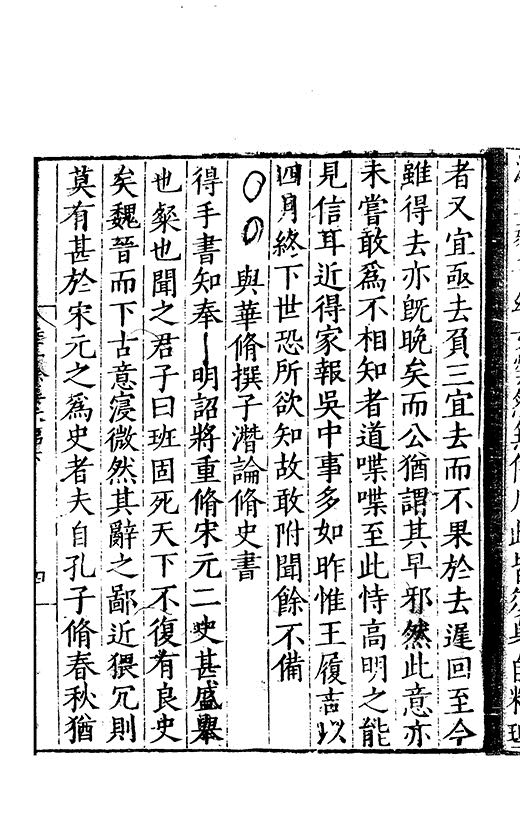 者又宜亟去負三宜去而不果於去遲回至今
雖得去亦既晚矣而公猶謂其早邪然此意亦
未嘗敢爲不相知者道喋喋至此恃高明之能
見信耳近得家報吳中事多如昨惟王履吉以
四月終下世恐所欲知故敢附聞餘不備
與華脩撰子潛論脩史書
得手書知奉明詔將重脩宋元二史甚盛舉
也粲也聞之君子曰班固死天下不復有良史
矣魏晉而下古意寖微然其辭之鄙近猥冗則
莫有甚於宋元之爲史者夫自孔子脩春秋猶
四